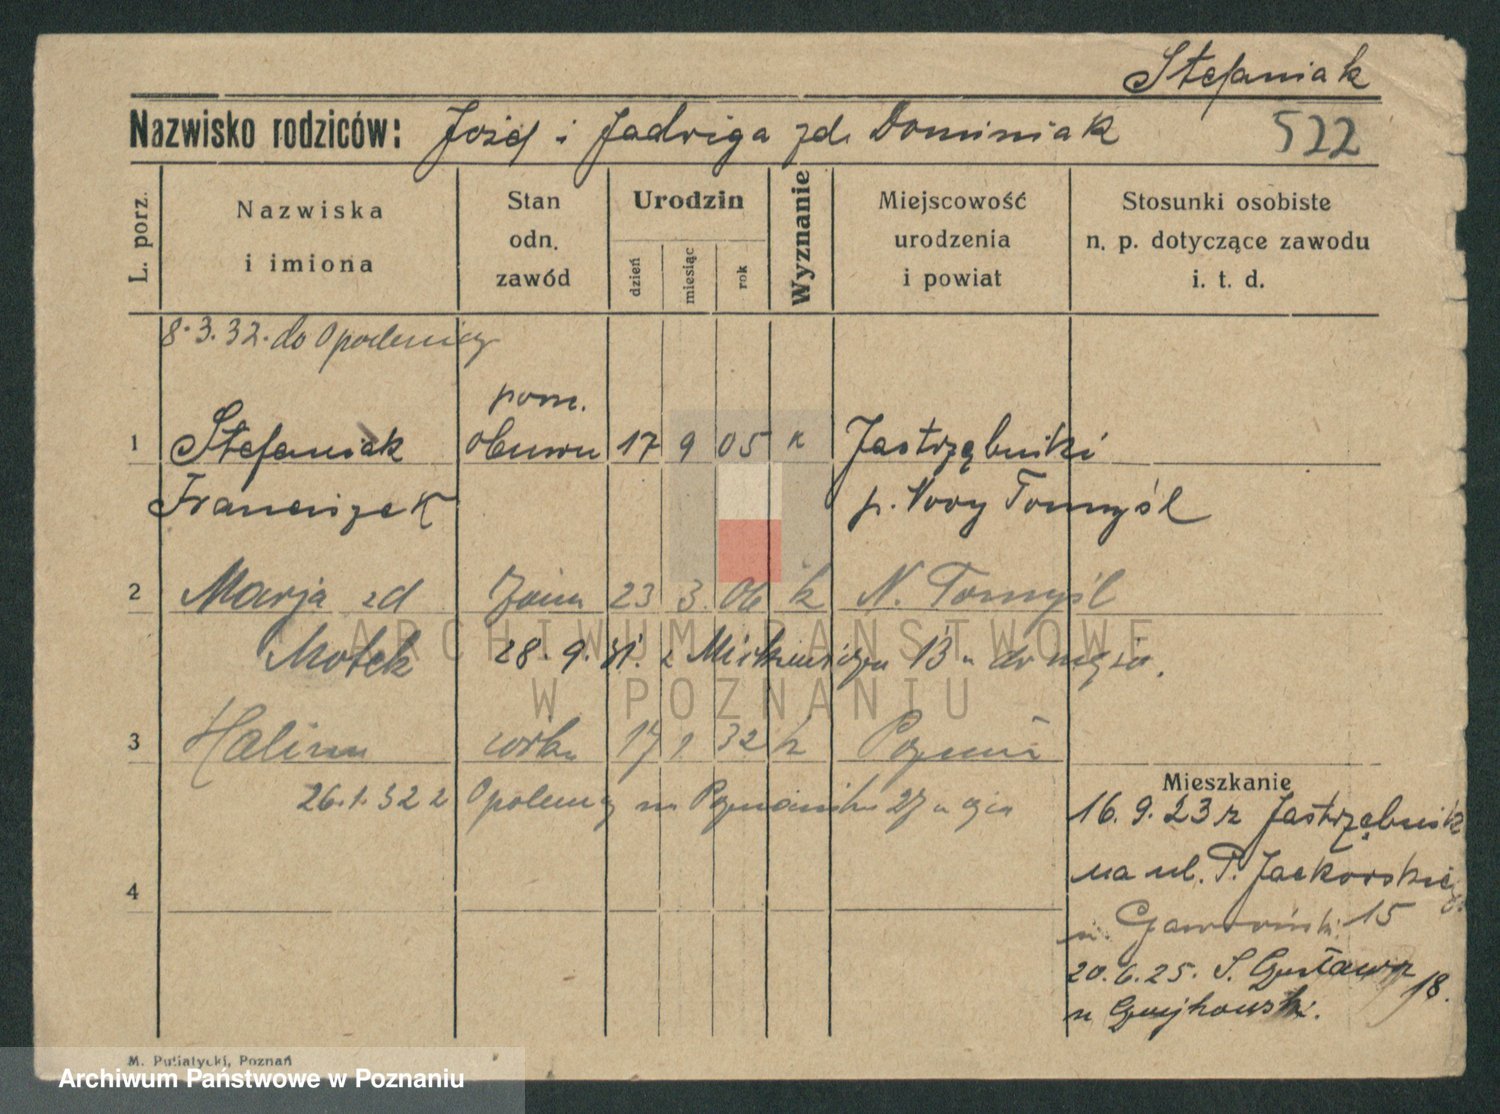 Stefaniak
Nazwisko rodziców: Józef i Jadwiga zd. Dominiak 522
L. porz.
Nazwiska
i imiona
Stan
odn.
zawód
Urodzin
dzień
miesiąc
rok
Wyznanie
Miejscowość
urodzenia
i powiat
Stosunki osobiste
n. p. dotyczące zawodu
i. t. d.
8.3.32. do Opalenicy
pom.
1 Stefaniak obuwn 17 9 05 k Jastrzębniki
Franciszek p. Nowy Tomyśl
2 Marja zd żona 23 3. 06 k N. Tomyśl
Motek 28.9.31. z Mickiewicza 13 do męża.
3 Halina córka 17 1 32 k Poznań
26.1.32 z Opalenicy na Poznańska 27 u ojca
Mieszkanie
16.9.23 z Jastrzębnik
na ul. P. Jackowskiego
u. 15
4
20.6.25. S. Gustawa 18.
u
M. Putiatycki, Poznań
ARCHIWUM PAŃSTWOWE
W POZNANIU
Archiwum Państwowe w Poznaniu